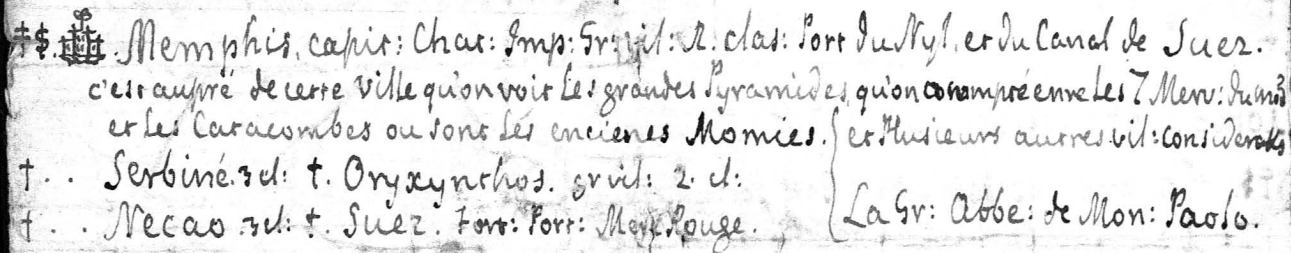 †$. Memphis, capit: Chat: Imp: Gr: vil: 1. clas: Port du Nyl, et du Canal de Suez.
c'est aupré de cette Ville qu'on voit les grandes Pyramides, qu'on compte entre les 7 Merv: du
et les Catacombes ou sont les encienes Momies. { et Plusieurs autres vil: considerables
† . . Serbiné. 3 cl: †. Oryxynthos. gr vil: 2. cl:
† . . Necao. 3 cl: †. Suez. Fort: Port: Mer Rouge. { La Gr: Abbe: de Mon: Paolo.